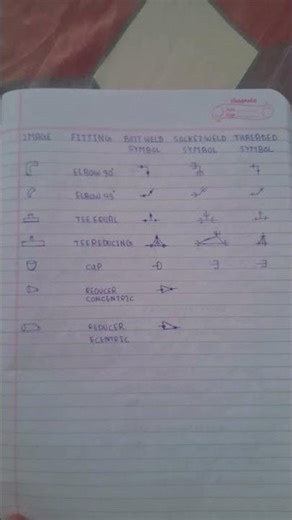 IMAGE FITTING BUTTWELD SYMBOL SOCKETWELD SYMBOL THREADED SYMBOL
ELBOW 90°
ELBOW 45°
TEE EQUAL
TEE REDUCING
CAP
REDUCER
CONCENTRIC
REDUCER
ECENTRIC